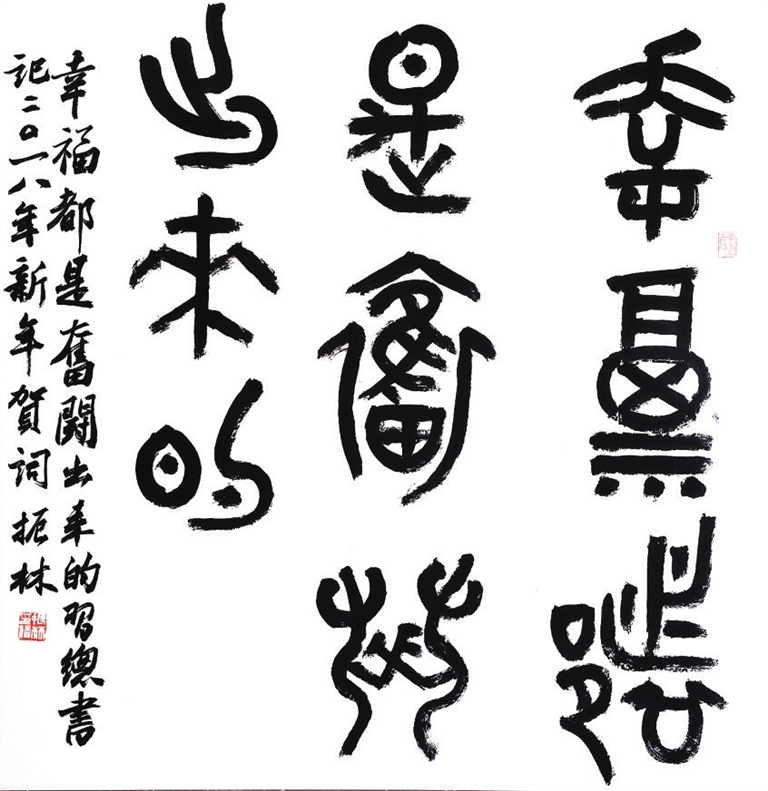 幸福都
是奮鬥
出來的
幸福都是奮鬪出来的習總書
記二〇一八年新年賀詞振林